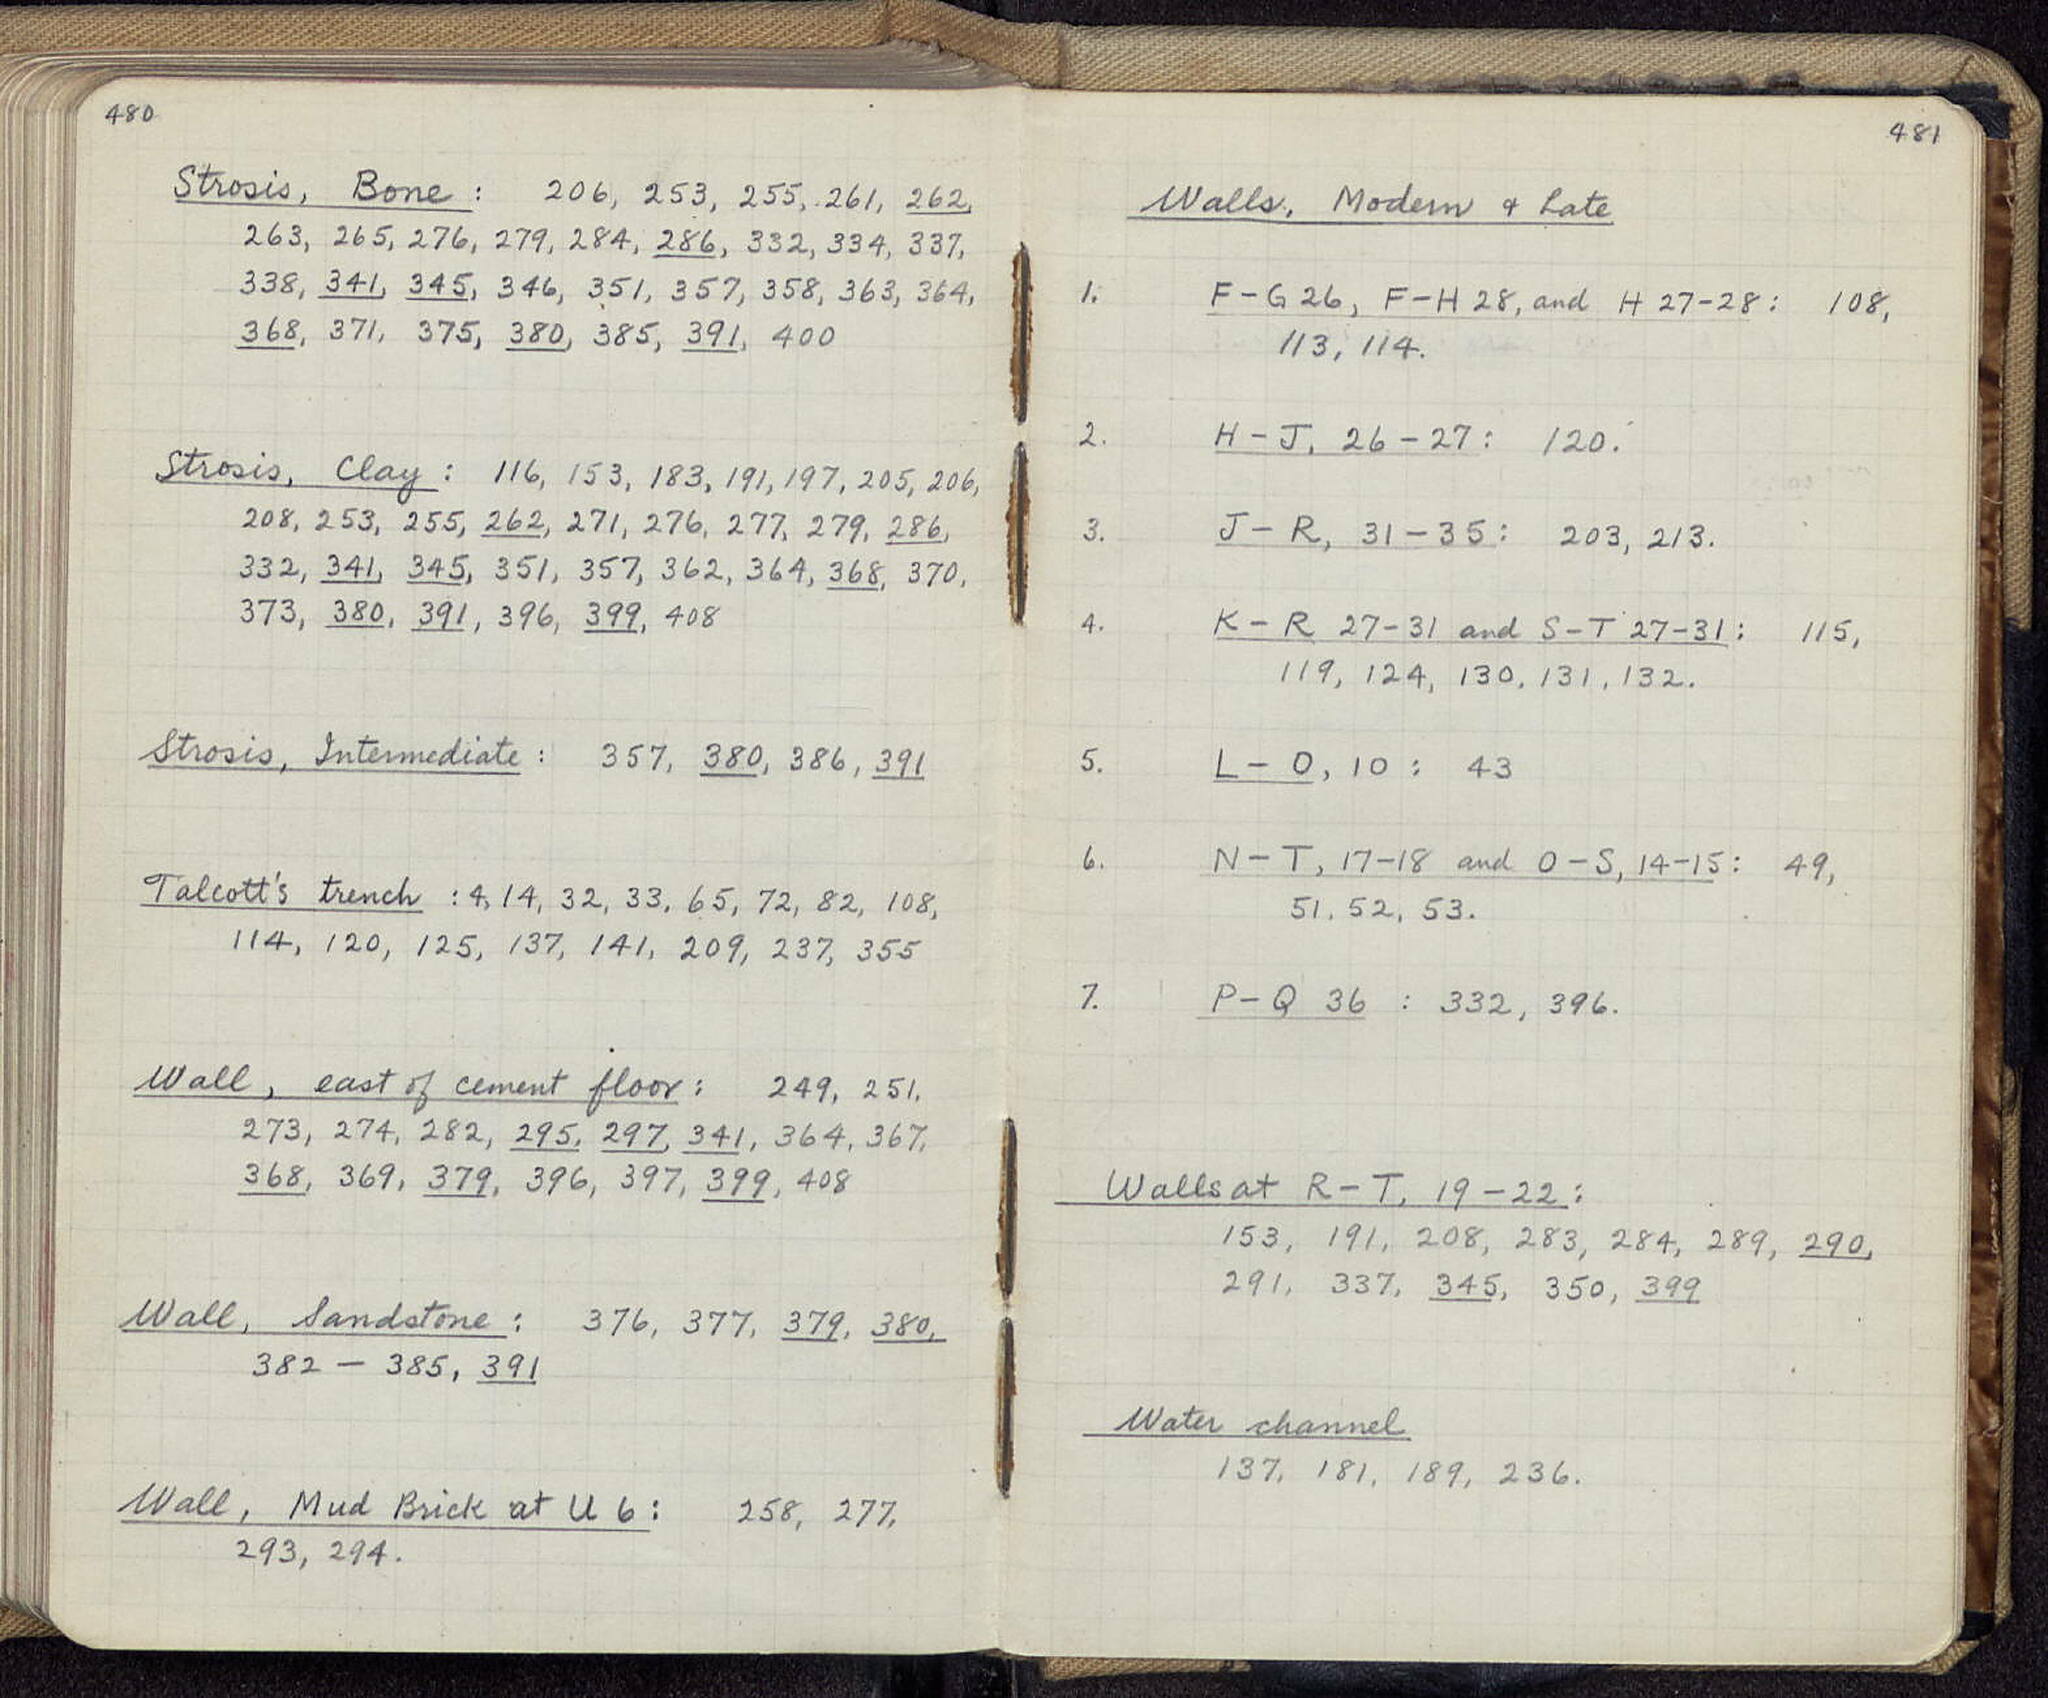 480
Strosis, Bone: 206, 253, 255, 261, 262,
263, 265, 276, 279, 284, 286, 332, 334, 337,
338, 341, 345, 346, 351, 357, 358, 363, 364,
368, 371, 375, 380, 385, 391, 400
Strosis, Clay: 116, 153, 183, 191, 197, 205, 206,
208, 253, 255, 262, 271, 276, 277, 279, 286,
332, 341, 345, 351, 357, 362, 364, 368, 370,
373, 380, 391, 396, 399, 408
Strosis, Intermediate: 357, 380, 386, 391
Talcott's trench: 4, 14, 32, 33, 65, 72, 82, 108,
114, 120, 125, 137, 141, 209, 237, 355
Wall, east of cement floor: 249, 251,
273, 274, 282, 295, 297, 341, 364, 367,
368, 369, 379, 396, 397, 399, 408
Wall, Sandstone: 376, 377, 379, 380,
382 – 385, 391
Wall, Mud Brick at U 6: 258, 277,
293, 294.
481
Walls, Modern & Late
1. F-G 26, F-H 28, and H 27-28: 108,
113, 114.
2. H-J, 26-27: 120.
3. J-R, 31-35: 203, 213.
4. K-R 27-31 and S-T 27-31: 115,
119, 124, 130, 131, 132.
5. L-O, 10: 43
6. N-T, 17-18 and O-S, 14-15: 49,
51, 52, 53.
7. P-Q 36: 332, 396.
Walls at R-T, 19-22:
153, 191, 208, 283, 284, 289, 290,
291, 337, 345, 350, 399
Water channel
137, 181, 189, 236.